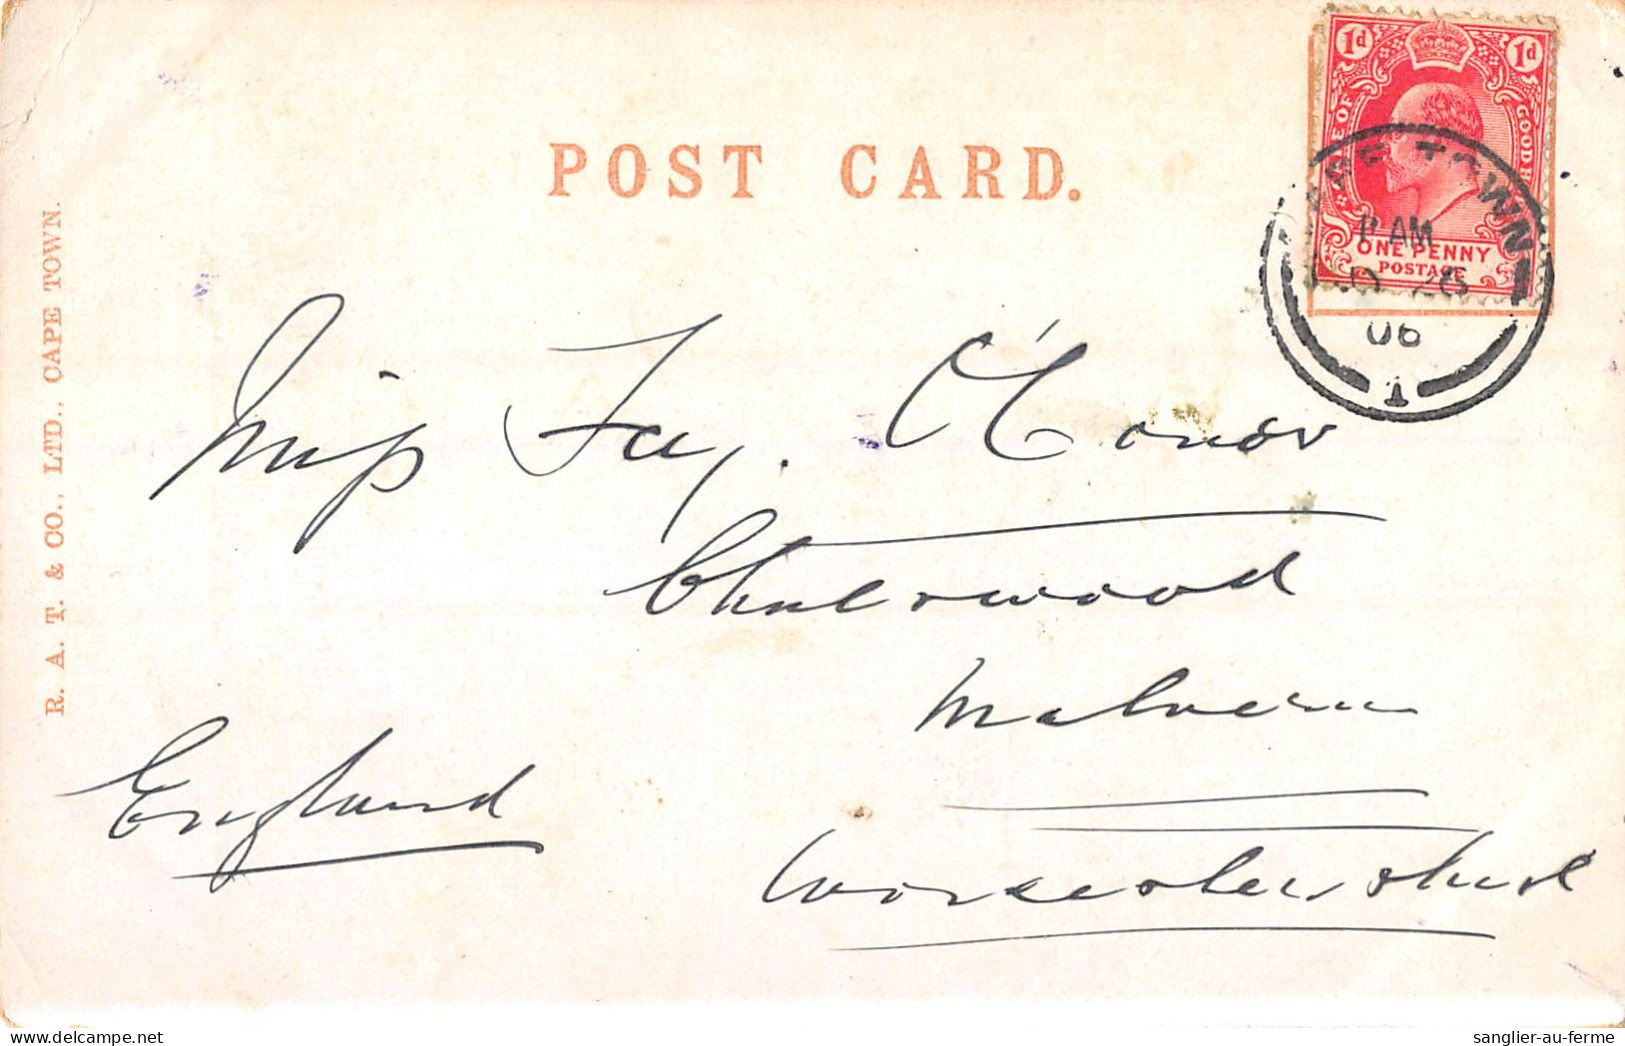 POST CARD.
R. A. T. & CO., LTD., CAPE TOWN.
1d 1d
GOOD
ONE PENNY
POSTAGE
TOWN
11 AM
26
06
1
Miss Fay. O'Conor
Malvern
Worcestershire
England
sanglier-au-ferme